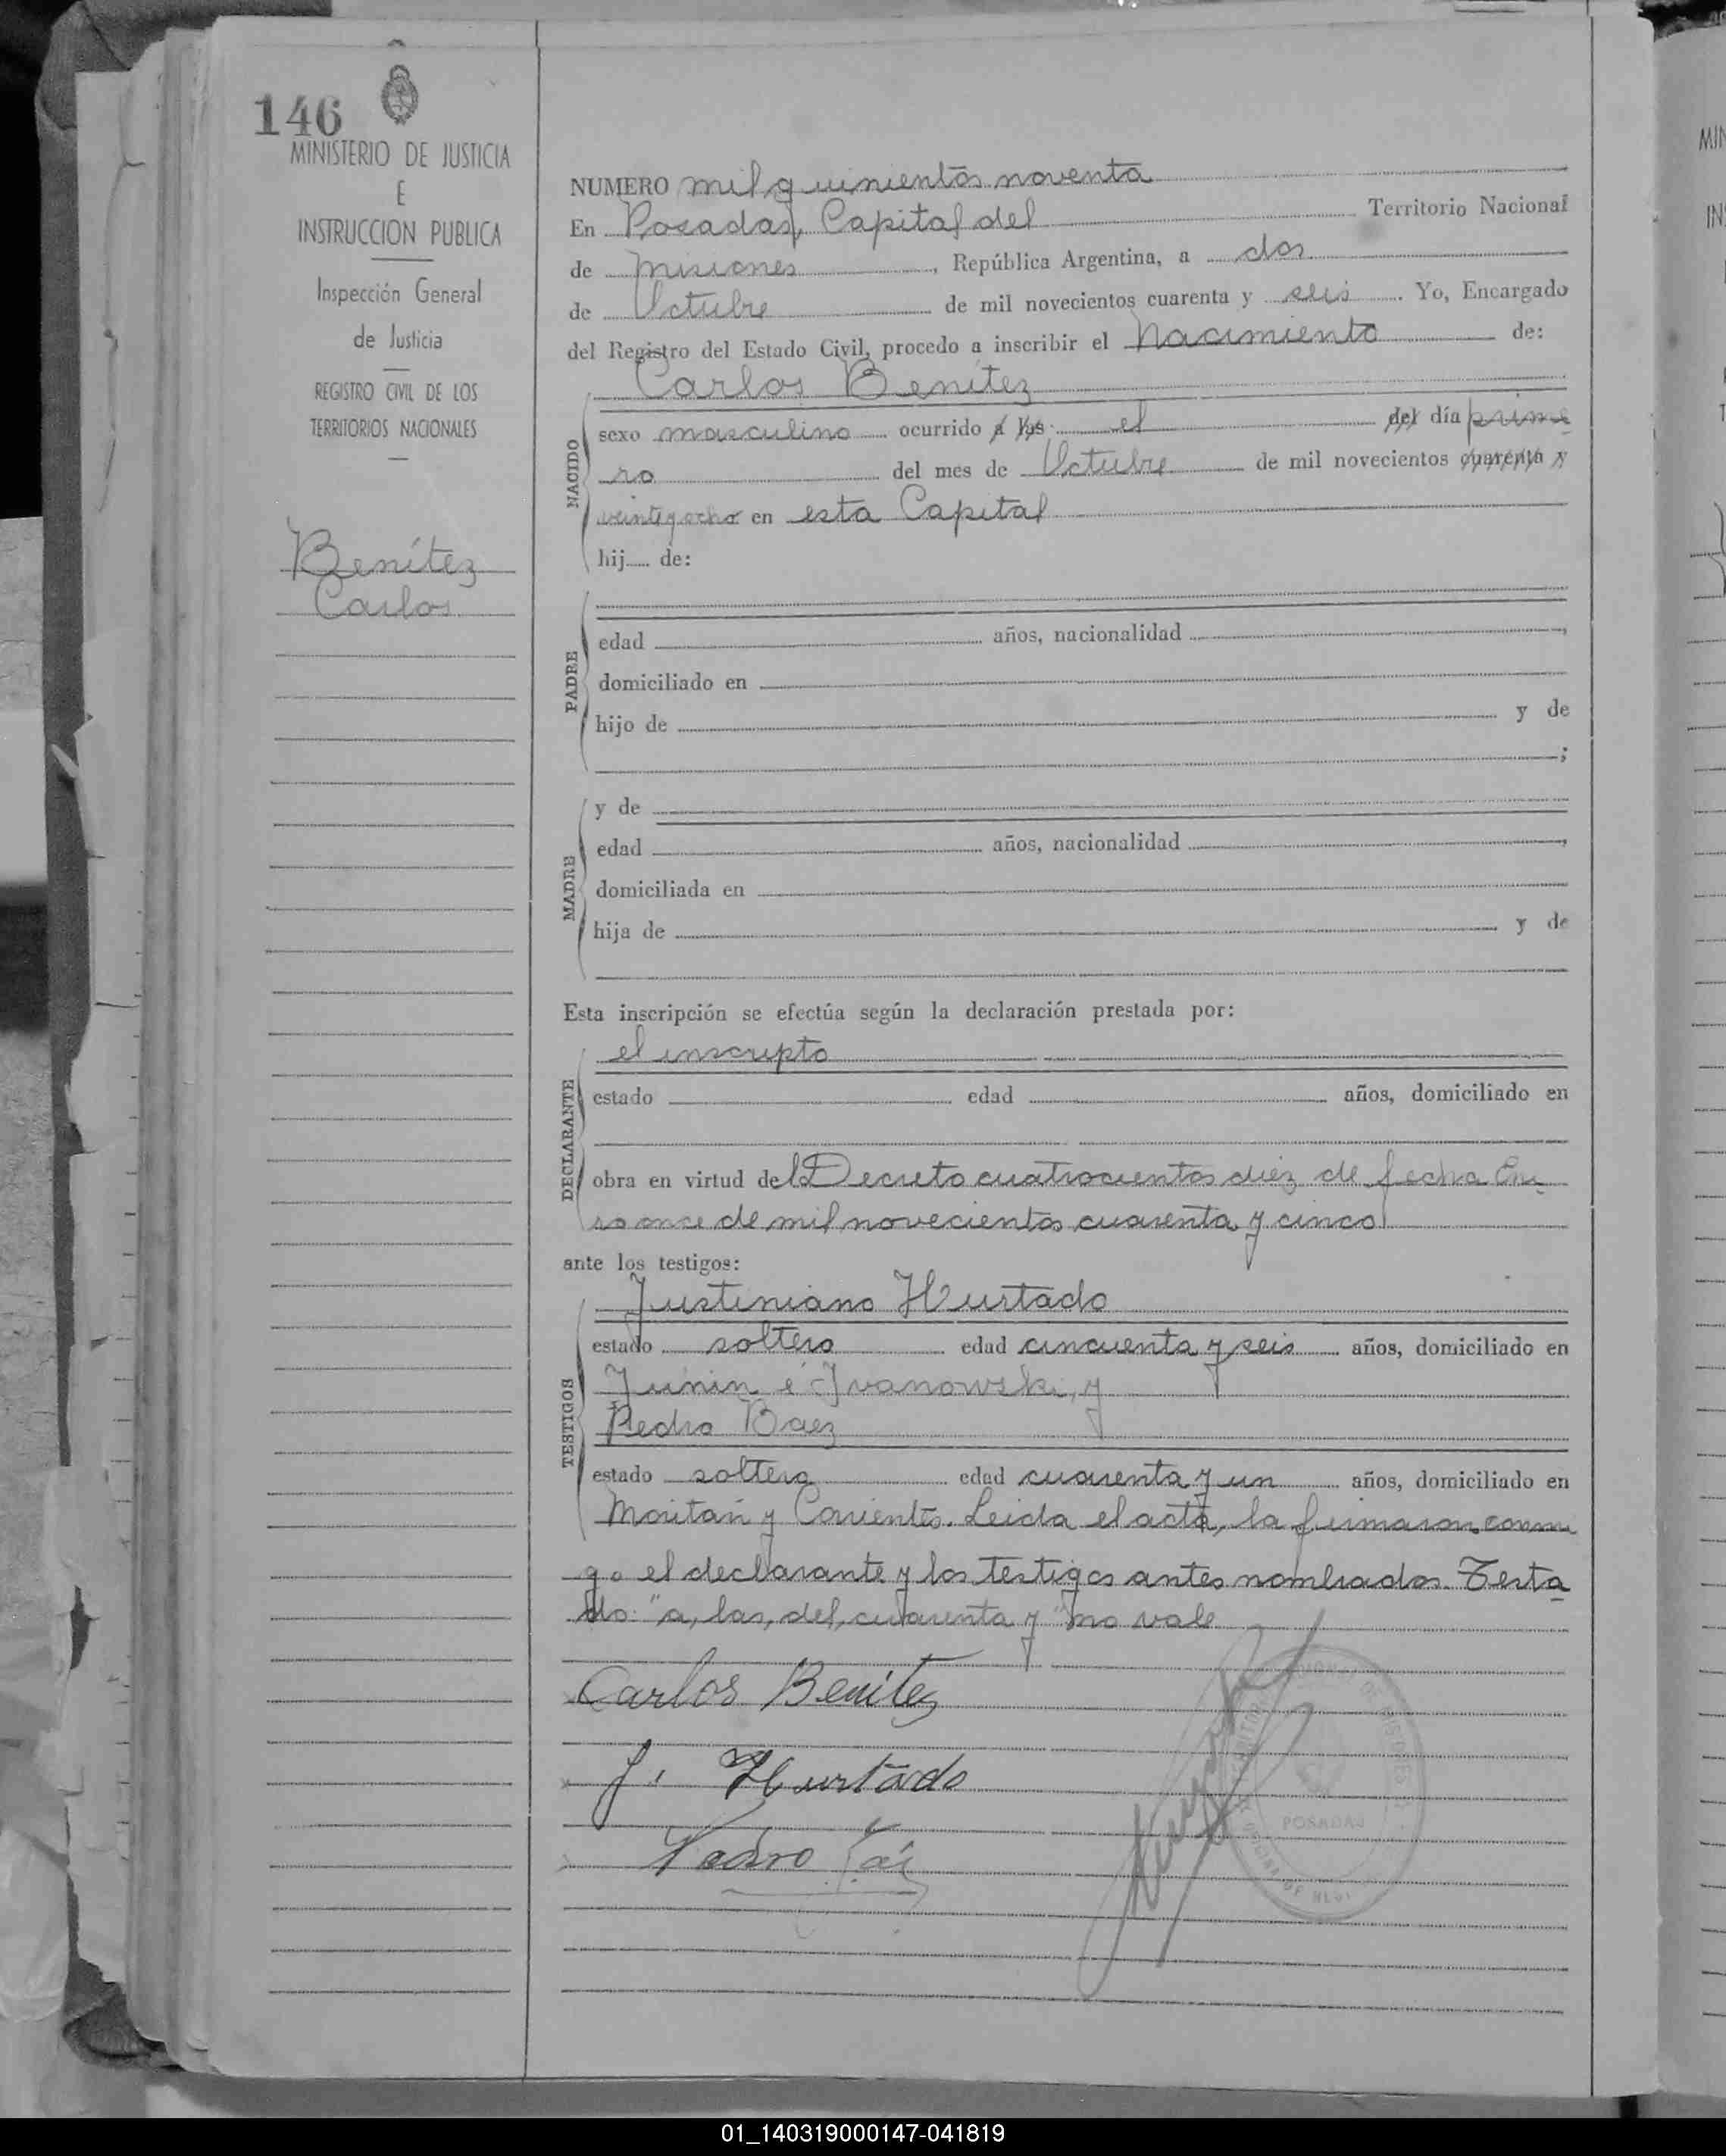 146
MINISTERIO DE JUSTICIA
E
INSTRUCCION PUBLICA
Inspección General
de Justicia
REGISTRO CIVIL DE LOS
TERRITORIOS NACIONALES
Benítez
Carlos
NUMERO mil quinientos noventa
En Posadas, Capital del Territorio Nacional
de Misiones, República Argentina, a dos
de Octubre de mil novecientos cuarenta y seis. Yo, Encargado
del Registro del Estado Civil, procedo a inscribir el Nacimiento de:
Carlos Benítez
NACIDO
sexo masculino ocurrido a las el del día prime
ro del mes de Octubre de mil novecientos cuarenta y
veintiqocho en esta Capital
hij..... de:
PADRE
edad años, nacionalidad
domiciliado en
hijo de y de
;
MADRE
y de
edad años, nacionalidad
domiciliada en
hija de y de
Esta inscripción se efectúa según la declaración prestada por:
DECLARANTE
el inscripto
estado edad años, domiciliado en
obra en virtud del Decreto cuatrocientos diez de fecha Ene
ro once de mil novecientos cuarenta y cinco
ante los testigos:
TESTIGOS
Justiniano Hurtado
estado soltero edad cincuenta y seis años, domiciliado en
Junin é Ivanowski, y
Pedro Baez
estado soltero edad cuarenta y un años, domiciliado en
Moritán y Corrientes. Leida el acta, la firmaron conmi
go el declarante y los testigos antes nombrados. Testa
do: "a, las, del, cuarenta y" no vale
Carlos Benítez
J. Hurtado
Pedro
POSADAS
01_140319000147-041819